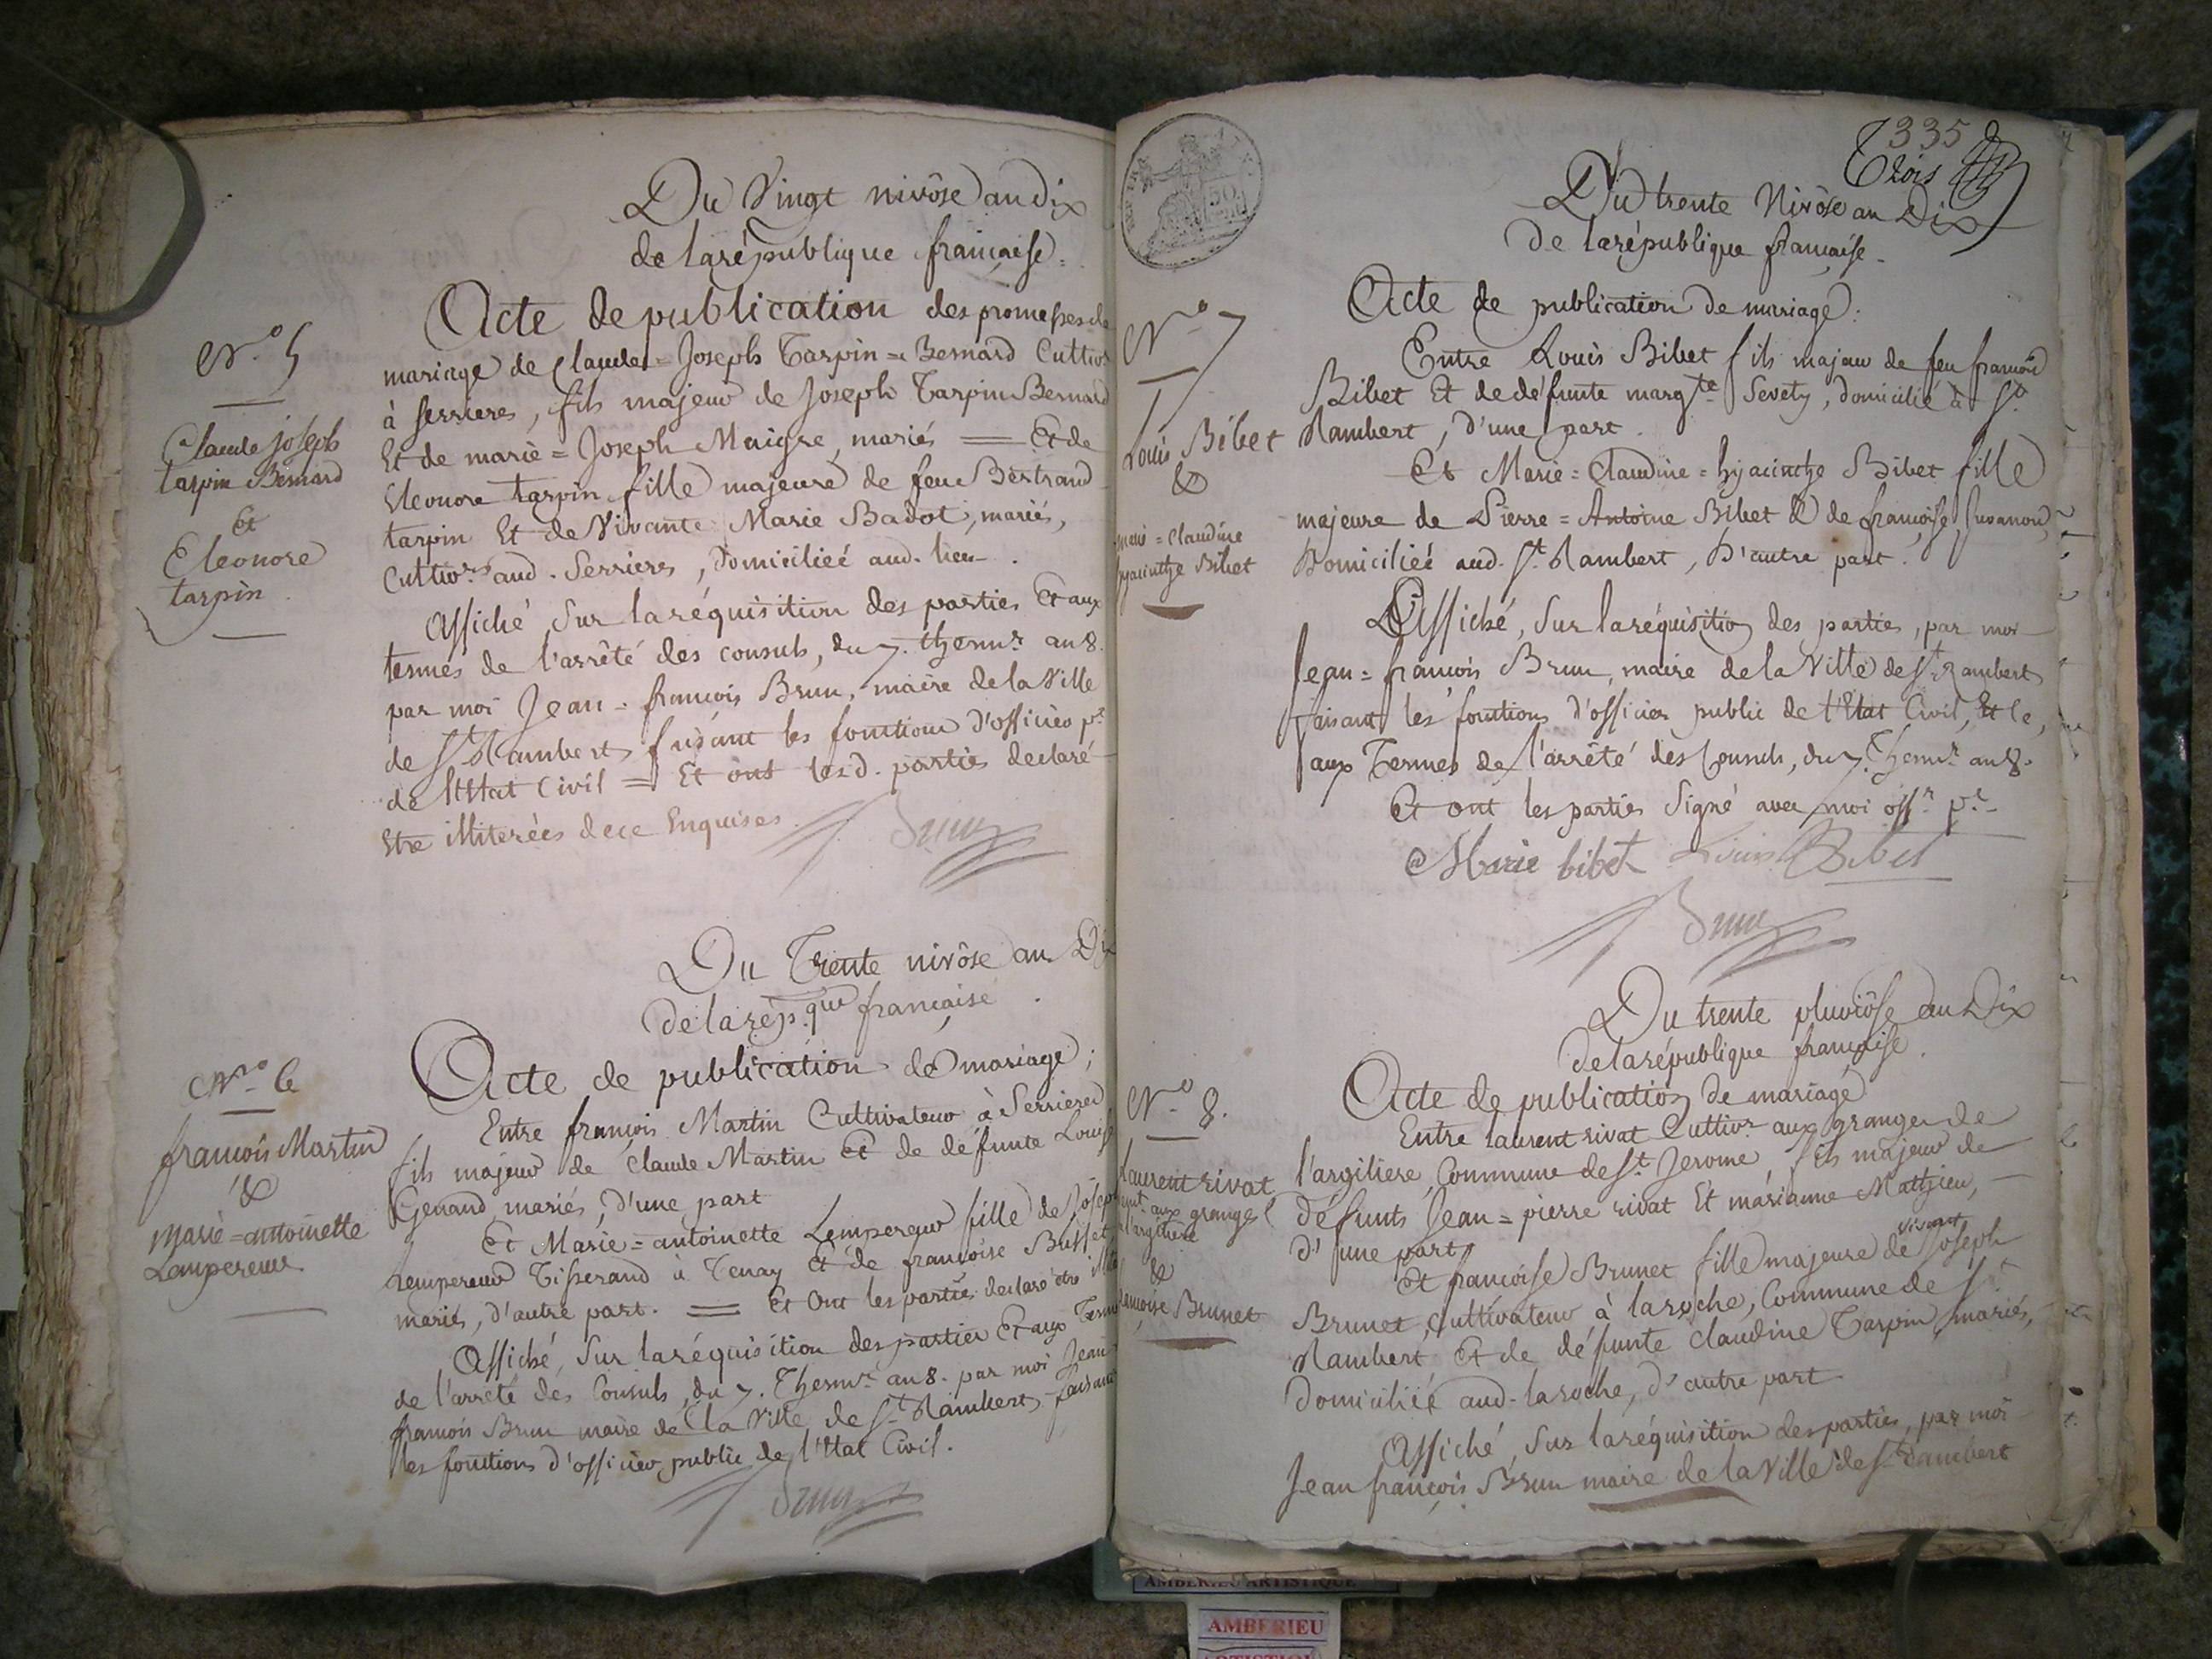 Du Vingt nivôse an dix
de la république française.
Acte de publication des promesses de
N.° 5
mariage de Claude = Joseph Tarpin = Bernard Cultivr
à serrieres, fils majeur de Joseph Tarpin Bernard
Claude joseph
tarpin Bernard
Et
Eleonore
tarpin
Et de marie = Joseph Maigre, mariés = Et de
Eleonore tarpin fille majeure de feu Bertrand
tarpin Et de Vivante Marie Badot, mariés,
Cultivrs aud. Serrieres, Domiciliée aud. lieu.
Affiché, Sur la réquisition des parties Et aux
termes de l'arrêté des consuls, du 7. thermr an 8.
par moi Jean = françois Brun, maire de la Ville
de St Rambert faisant les fonctions d'officier pc
de l'Etat Civil = Et ont lesd. parties declaré
Etre illiterées de ce Enquises.
Brun
Du Trente nivôse an Dix
de la rép.que française.
N.° 6
françois Martin
&
Marie = antoinette
Lempereur
Acte de publication de mariage;
Entre françois Martin Cultivateur à Serrieres
fils majeur de Claude Martin Et de défunte Louise
Genand mariés, d'une part
Et Marie = antoinette Lempereur fille de Joseph
Lempereur Tisserand à Tenay Et de françoise
mariés, d'autre part. = Et Ont les parties declaré etre
Affiché, Sur la réquisition des parties Et aux Termes
de l'arreté des Consuls, du 7. Thermr an 8. par moi Jean
françois Brun maire de la Ville de St Rambert, faisant
les fonctions d'officier public de l'Etat Civil.
Brun
335
Trois
Du trente Nivôse an Dix
De la république française.
N.° 7
Louis Bibet
&
marie = Claudine
hyacinthe Bibet
Acte de publication de mariage.
Entre Louis Bibet fils majeur de feu françois
Bibet Et de défunte margte Sevety, domicilié à St
Rambert, d'une part.
Et Marie = Claudine = hyacinthe Bibet fille
majeure de Pierre = Antoine Bibet & de françoise
Domiciliée aud. St Rambert, D'autre part.
Affiché, Sur la réquisition des parties, par moi
Jean = françois Brun, maire de la Ville de St Rambert
faisant les fonctions d'officier public de l'Etat Civil, Et ce,
aux Termes de l'arrêté des Consuls, du 7. Thermr an 8.
Et ont les parties Signé avec moi offr pc
Marie bibet Louis Bibet
Brun
Du trente pluviôse an Dix
de la république française.
N.° 8.
Laurent rivat
aux granges
l'argiliere
&
françoise Brunet
Acte de publication de mariage
Entre laurent rivat Cultivr aux granges de
l'argiliere, Commune de St Jerome, fils majeur de
défunts Jean = pierre rivat Et marianne Mathieu,
d'une part
Et françoise Brunet fille majeure de vivant Joseph
Brunet, Cultivateur à laroche, Commune de St
Rambert Et de défunte Claudine Tarpin, mariés,
Domiciliée aud. laroche, d'autre part
Affiché, Sur la réquisition des parties, par moi
Jean françois Brun maire de la Ville de St Rambert
AMBERIEU ARTISTIQUE
AMBERIEU
ARTISTIQUE